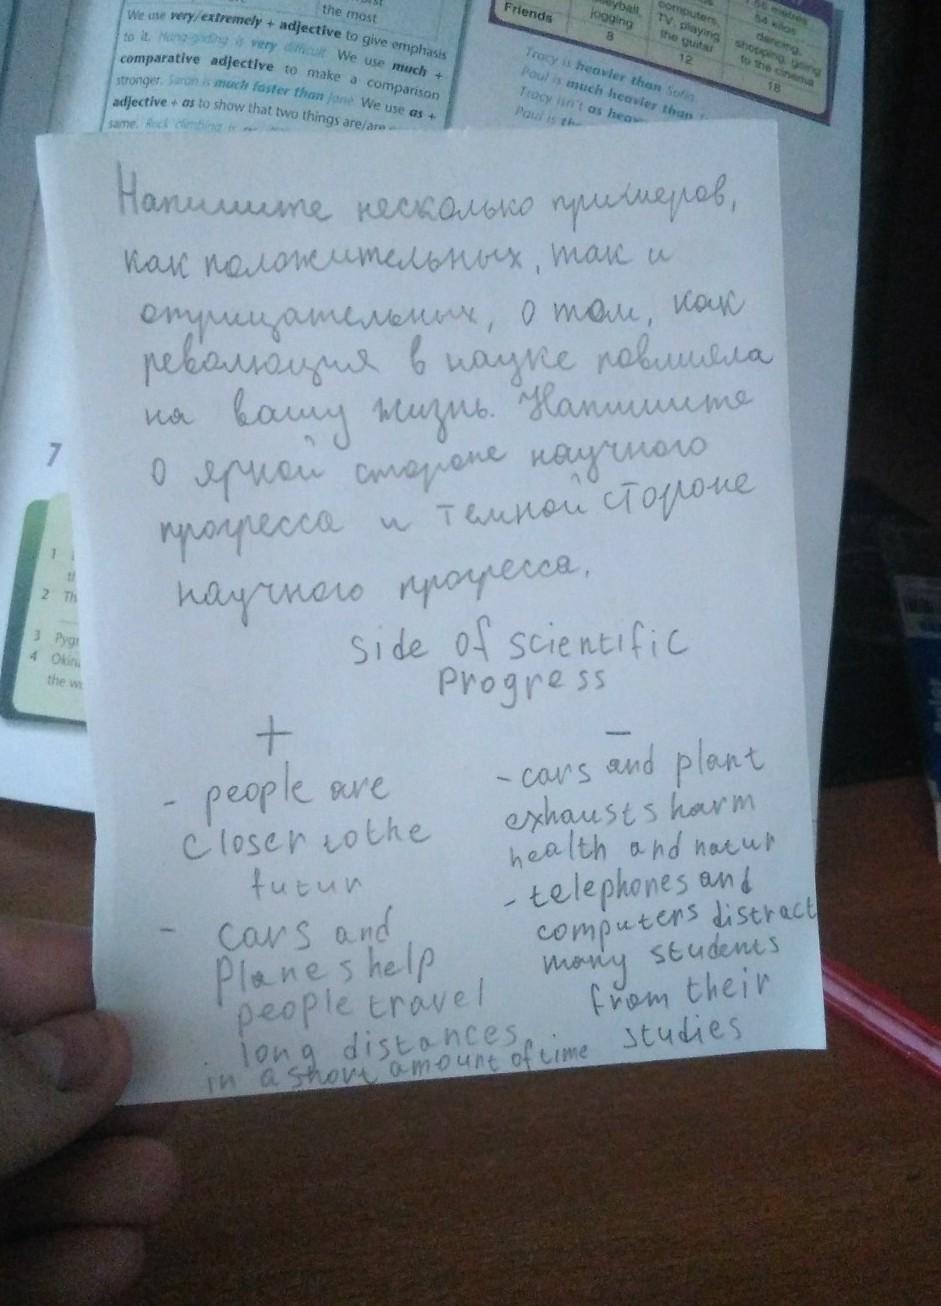 the most
We use very/extremely + adjective to give emphasis
to it. Hang-gliding is very difficult. We use much +
comparative adjective to make a comparison
stronger. Saran is much faster than Jane. We use as +
adjective + as to show that two things are/are
same. Rock climbing is
Friends
jogging
8
computers,
TV, playing
the guitar
12
54 kilos
dancing,
shopping, going
to the cinema
18
Tracy is heavier than Sofia.
Paul is much heavier than
Tracy isn't as heavy
Paul is
7
1
2 Th
3 Pygr
4 Okin
the w
Напишите несколько примеров,
как положительных, так и
отрицательных, о том, как
революция в науке повлияла
на вашу жизнь. Напишите
о яркой стороне научного
прогресса и темной стороне
научного прогресса.
Side of scientific
Progress
+
- people are
closer to the
futur
- cars and
Planes help
people travel
long distances
in a short amount of time
−
- cars and plant
exhausts harm
health and natur
- telephones and
computers distract
many students
from their
studies